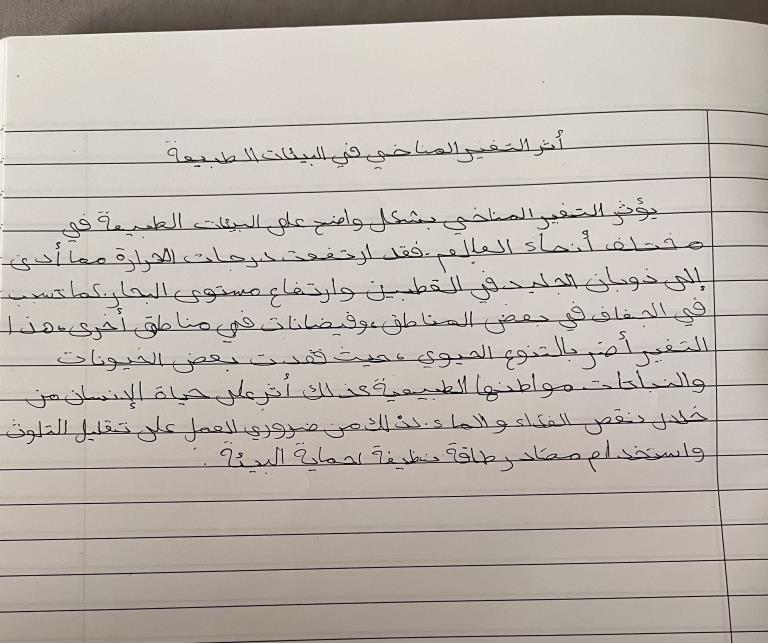 أثر التغير المناخي في البيئات الطبيعية
يؤثر التغير المناخي بشكل واضح على البيئات الطبيعية في
مختلف أنحاء العالم. فقد ارتفعت درجات الحرارة مما أدى
إلى ذوبان الجليد في القطبين وارتفاع مستوى البحار. كما تسبب
في الجفاف في بعض المناطق، وفيضانات في مناطق أخرى، هذا
التغير أضر بالتنوع الحيوي، حيث فقدت بعض الحيونات
والنباتات مواطنها الطبيعية كذلك أثر على حياة الإنسان من
خلال نقص الغذاء والماء. لذلك من ضروري العمل على تقليل التلوث
واستخدام مصادر طاقة نظيفة لحماية البيئة.